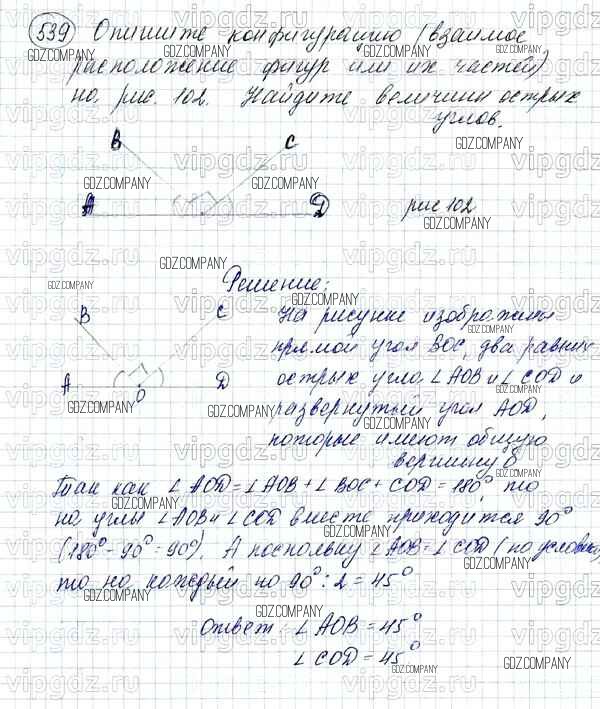 539 Опишите конфигурацию (взаимное
расположение фигур или их частей)
на рис. 102. Найдите величины острых
углов.
B C
A D рис 102
Решение:
B C
A O D
На рисунке изображены
прямой угол BOC, два равных
острых угла ∠AOB и ∠COD и
развернутый угол AOD,
которые имеют общую
вершину O
Так как ∠AOD = ∠AOB + ∠BOC + COD = 180°, то
на углы ∠AOB и ∠COD вместе приходится 90°
(180° - 90° = 90°). А поскольку ∠AOB = ∠COD (по условию),
то на каждый по 90° : 2 = 45°
Ответ: ∠AOB = 45°
∠COD = 45°
vipgdz.ru
GDZ.COMPANY